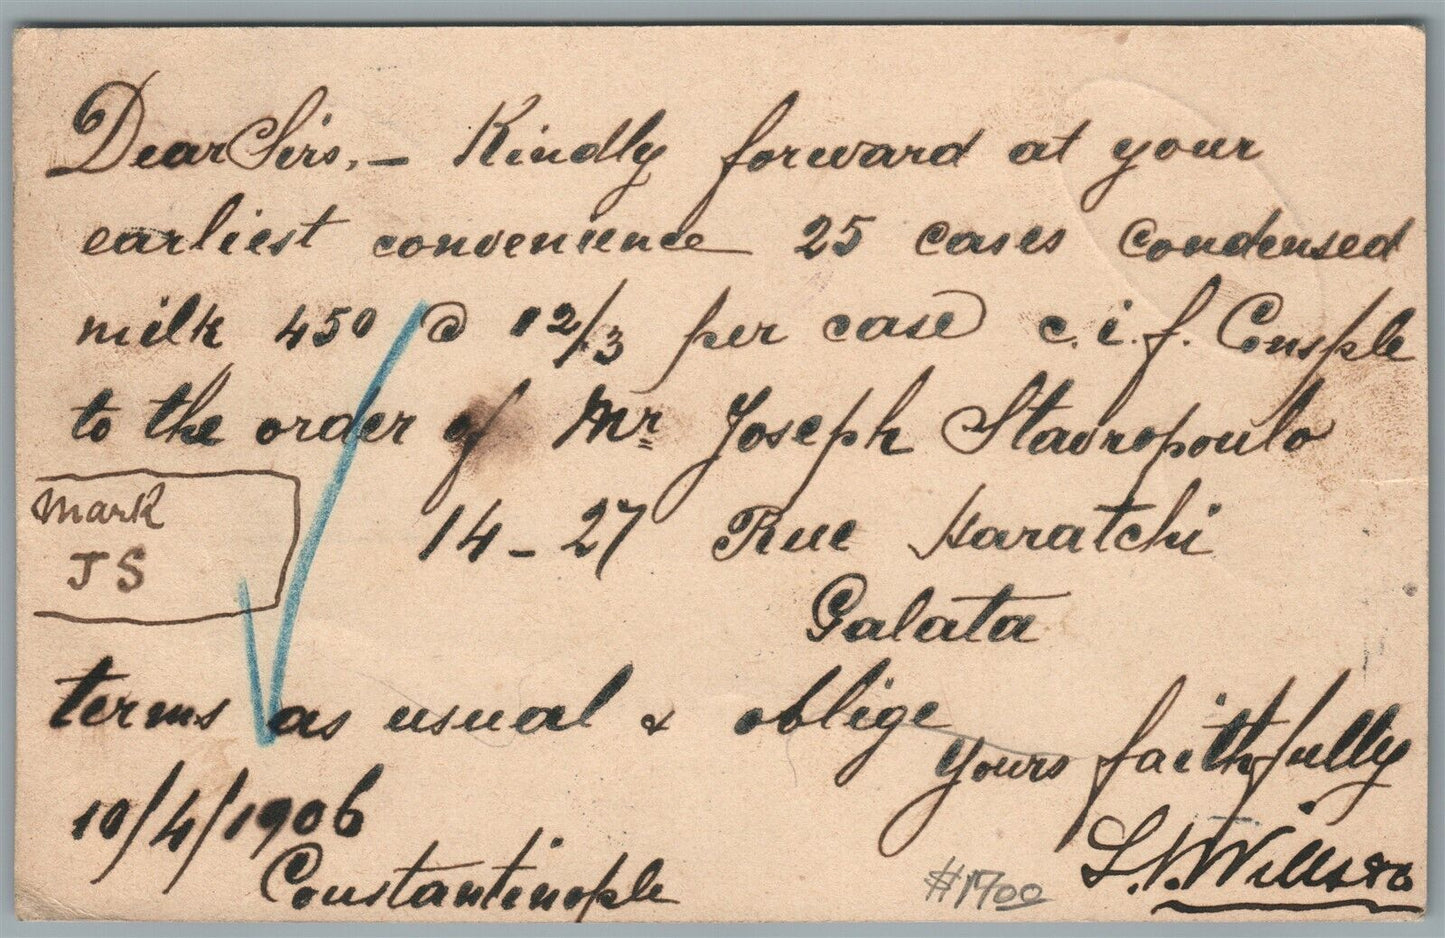 Dear Sirs, — Kindly forward at your
earliest convenience 25 cases Condensed
milk 450 @ 12/3 per case c.i.f. Consple
to the order of Mr Joseph Stavropoulo
Mark
JS
14 - 27 Rue Karatchi
Galata
terms as usual & oblige
Yours faithfully
10/4/1906
Constantinople
#1700